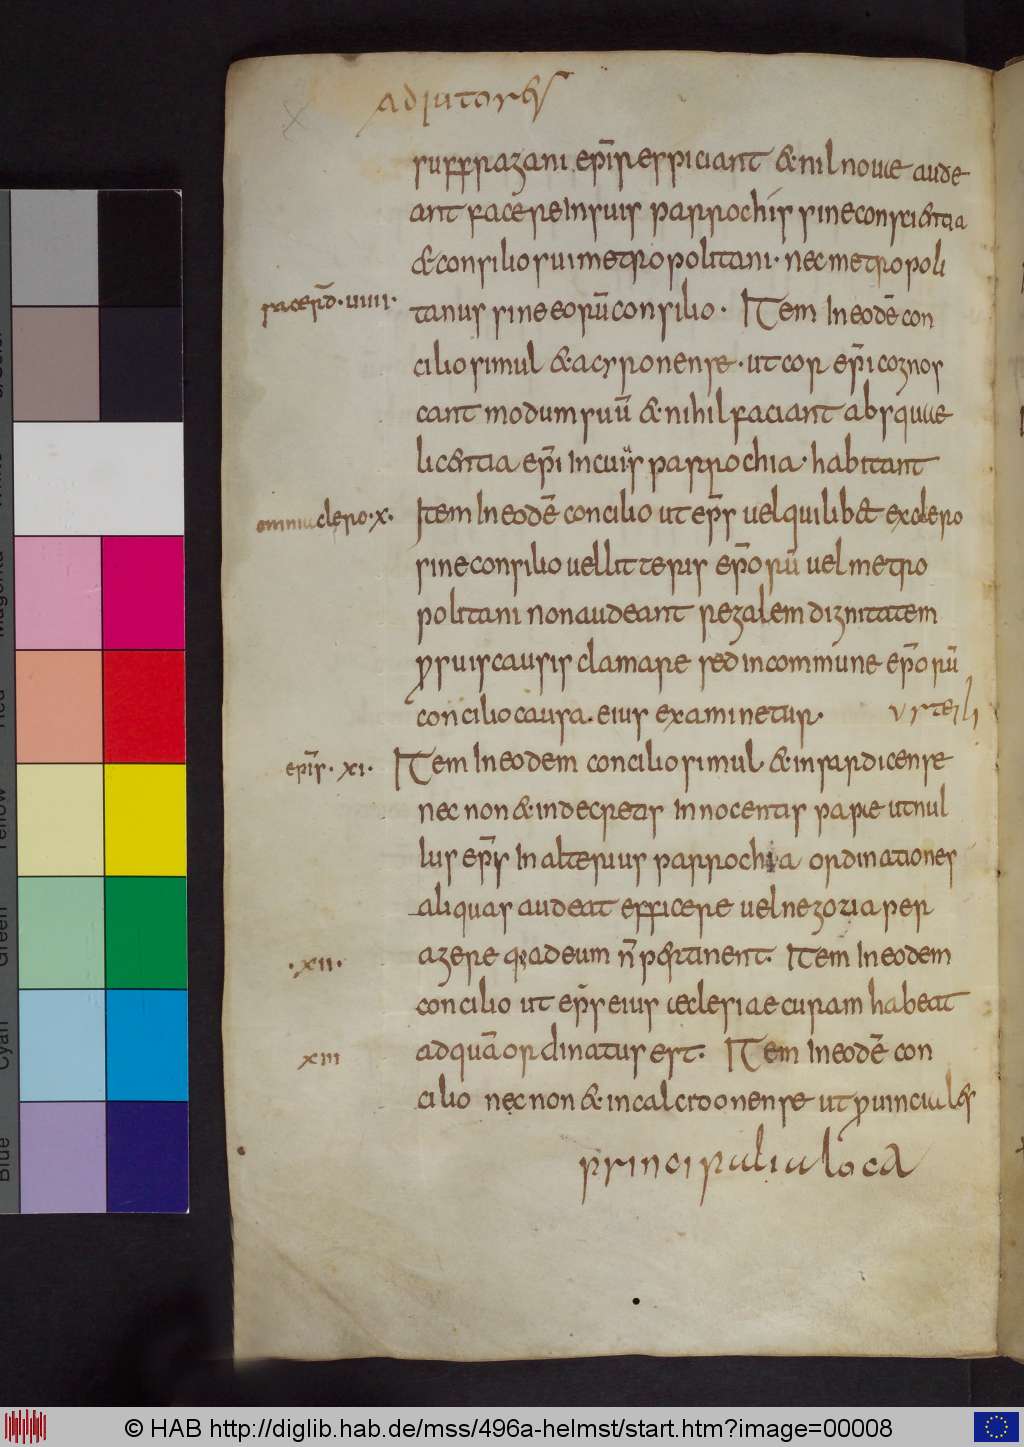 adiutores
suffragani epīs respiciant & nil noue aude
ant facere In suis parrochiis sine conscientia
& consilio sui metropolitani· nec metropoli
sacerd̄·uiiii·
tanus sine eorū consilio· Item In eodē con
cilio simul & acyronense· ut cor epī cognos
cant modum suū & nihil faciant absque
licentia epī In cuius parrochia· habitant
omniu clero·x·
Item In eodē concilio ut ep̄s uel quilib& ex clero
sine consilio uel litteris ep̄orū uel metro
politani non audeant regalem dignitatem
p suis causis clamare sed in commune ep̄orū
concilio causa. eius examinetur·
epīs· xi·
Item In eodem concilio simul & in sardicense
nec non & in decretis Innocentis papae ut nul
lus ep̄s In alterius parrochia ordinationes
aliquas audeat efficere uel negozia per
·xii·
agere q; ad eum n̄ pertinent· Item In eodem
concilio ut ep̄s eius ecclesiae curam habeat
xiii
ad quā ordinatus est· Item In eodē con
cilio nec non & in calcidonense ut puinciales
principalia loca
© HAB http://diglib.hab.de/mss/496a-helmst/start.htm?image=00008